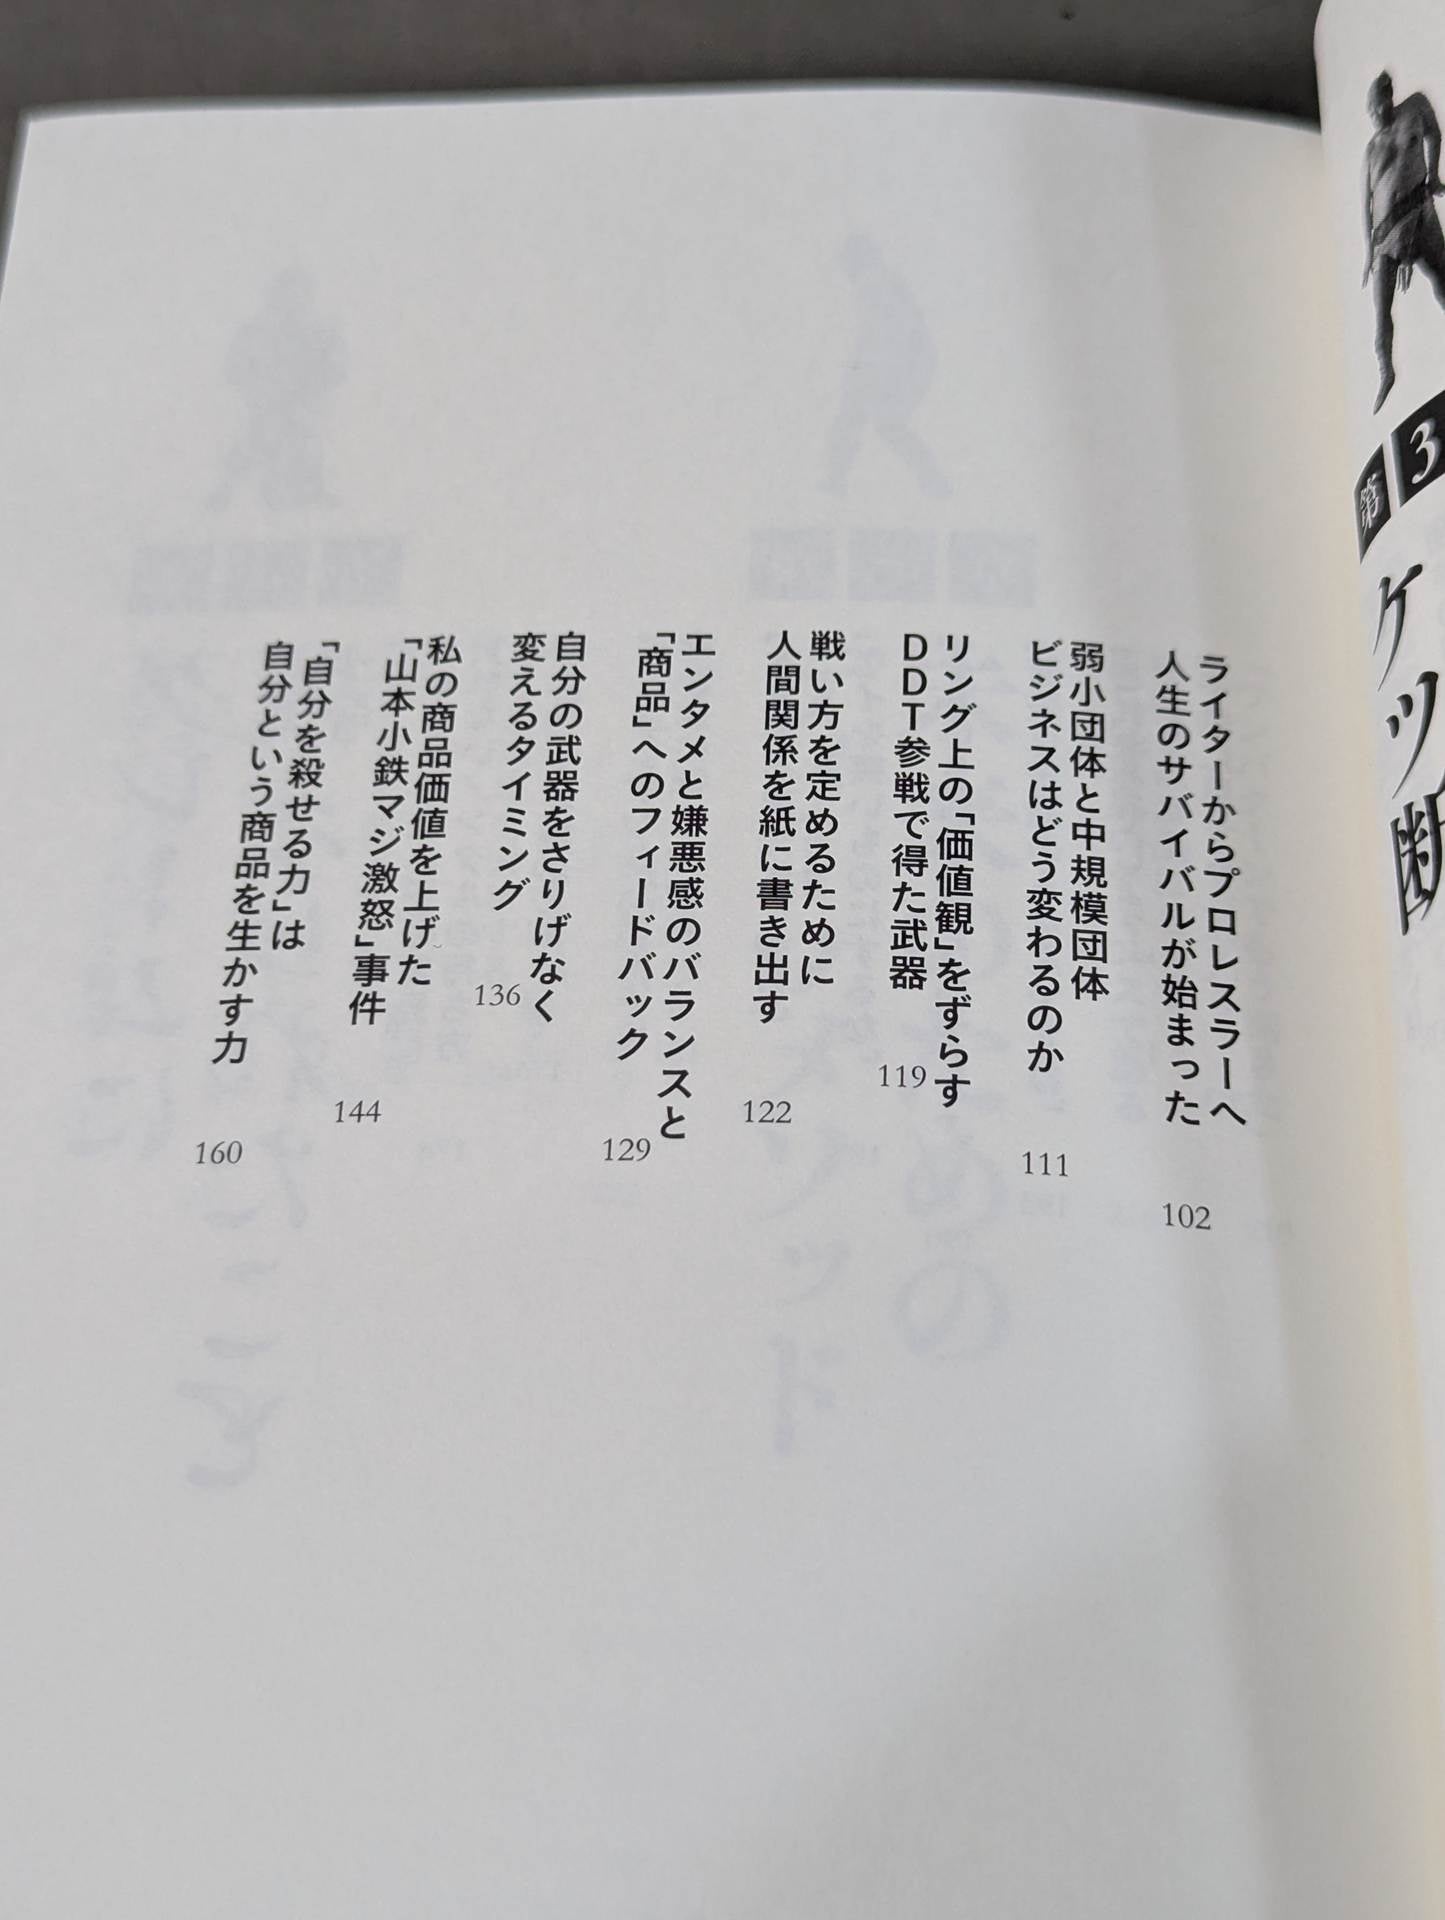 第3
ケツ断
ライターからプロレスラーへ
人生のサバイバルが始まった
102
弱小団体と中規模団体
ビジネスはどう変わるのか
111
リング上の「価値観」をずらす
DDT参戦で得た武器
119
戦い方を定めるために
人間関係を紙に書き出す
122
エンタメと嫌悪感のバランスと
「商品」へのフィードバック
129
自分の武器をさりげなく
変えるタイミング
136
私の商品価値を上げた
「山本小鉄マジ激怒」事件
144
「自分を殺せる力」は
自分という商品を生かす力
160